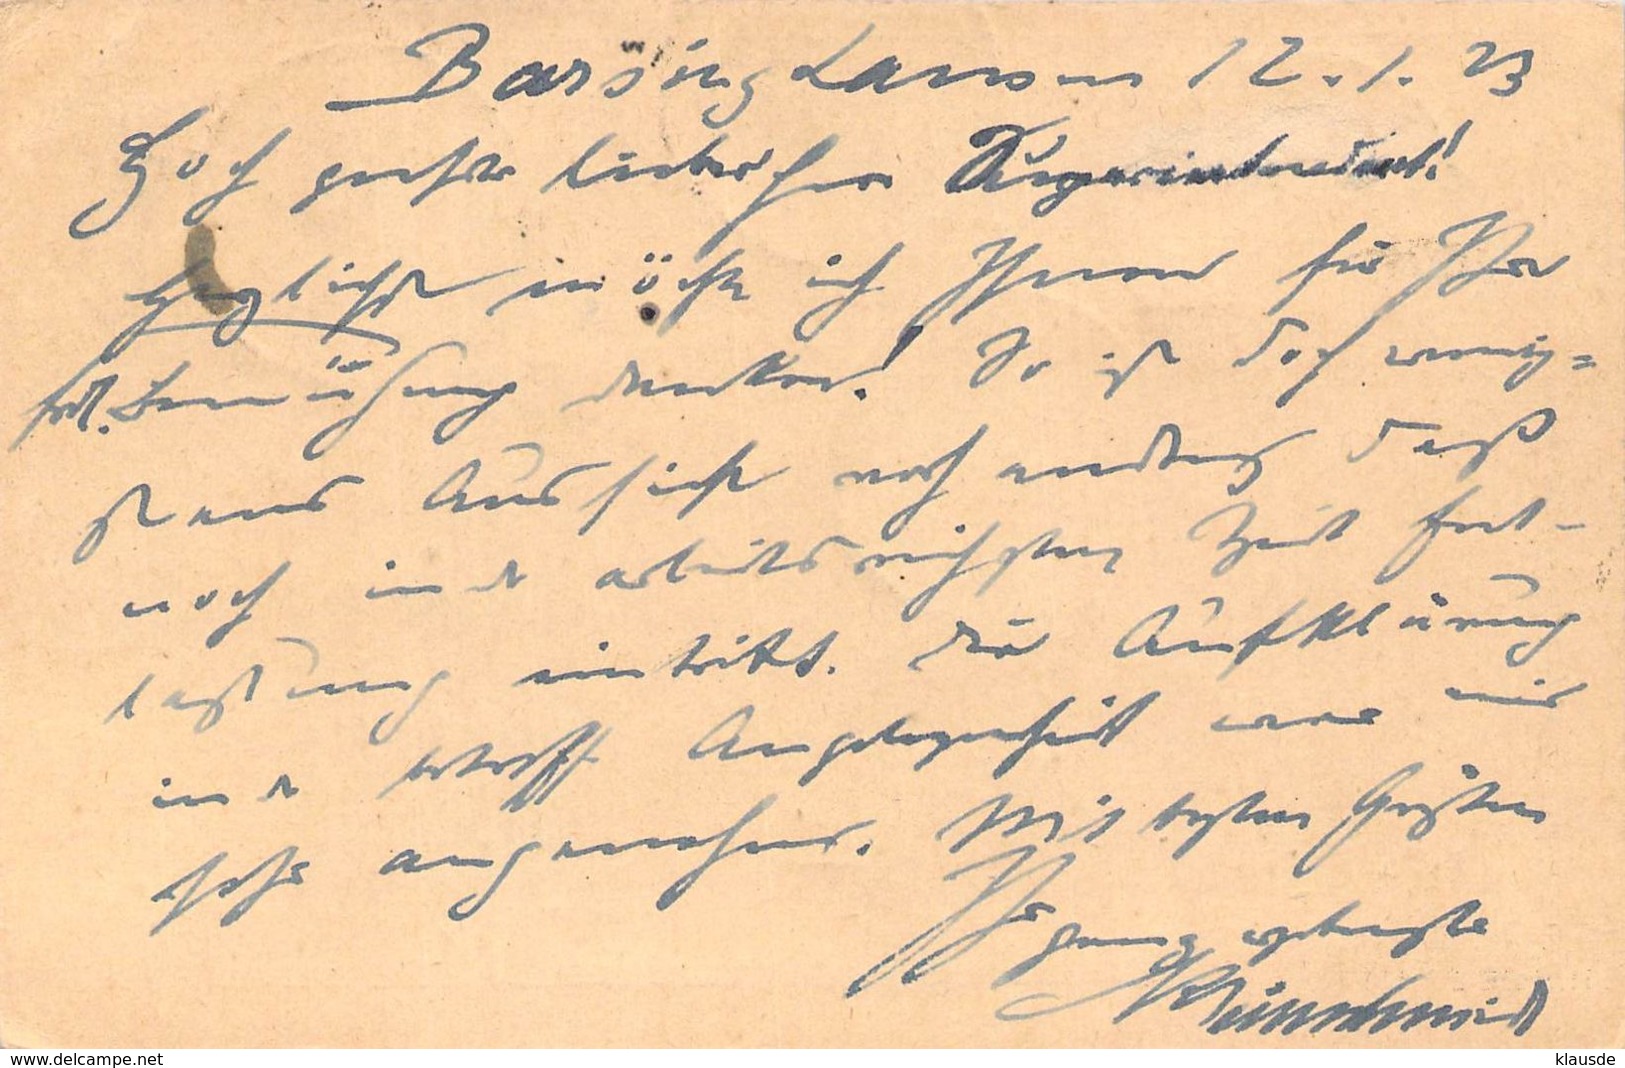 Barsinghausen 12.1.23
Hoch geehrter lieber Herr Superintendent!
Herzlichst möchte ich Ihnen für Ihre
frdl. Bemühung danken! So ist doch wenig=
stens Aussicht vorhanden, daß
noch in der arbeitsreichsten Zeit Ent-
lastung eintritt. Die Aufklärung
in der betreff. Angelegenheit war mir
sehr angenehm. Mit besten Grüßen
Ihr
ganz ergebenster
delcampe.net
klausde